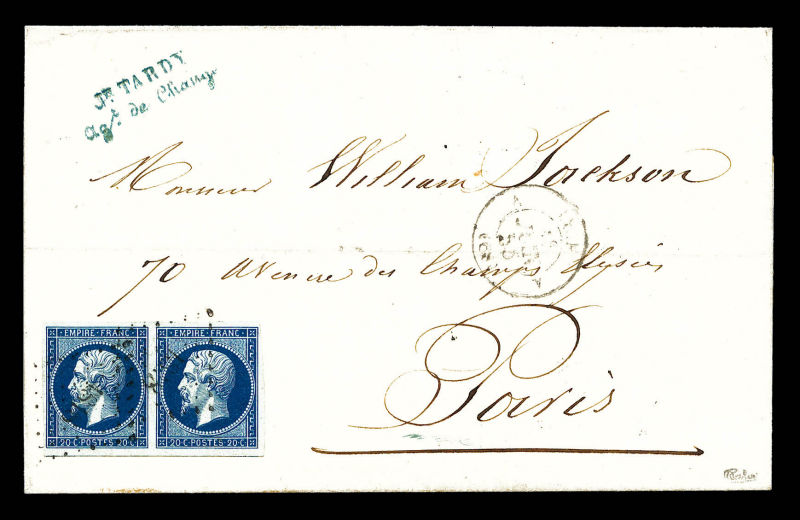 Jh TARDY
Agt. de Change
Monsieur William Jackson
70 Avenue des Champs Elysées
Paris
EMPIRE FRANC EMPIRE FRANC
20 C POSTES 20 C 20 C POSTES 20 C